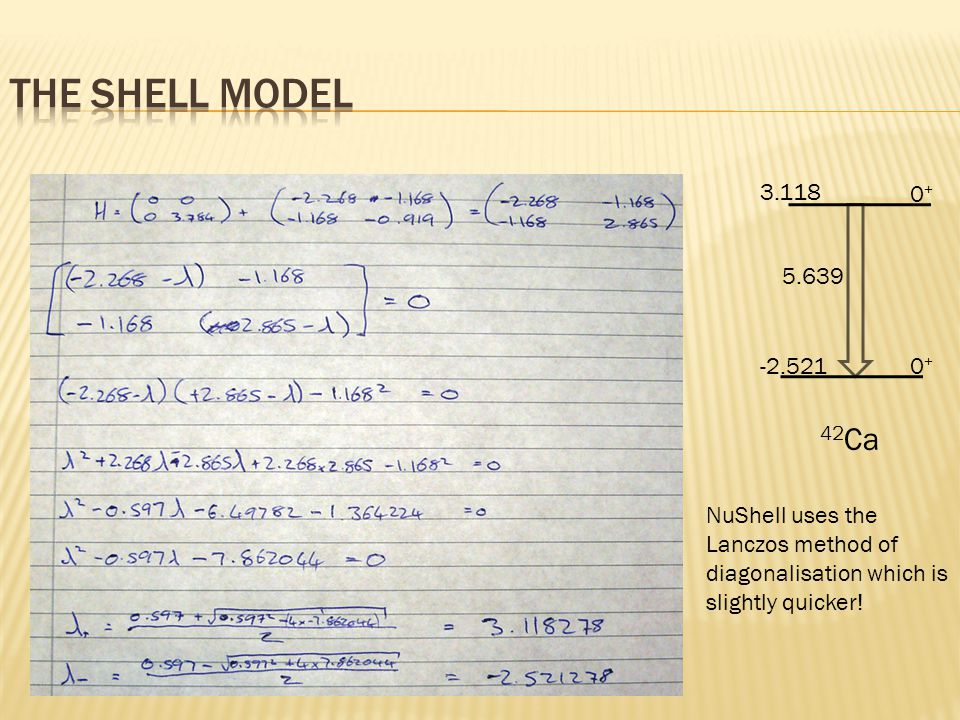 THE SHELL MODEL
H = (0 0 / 0 3.784) + (-2.268 -1.168 / -1.168 -0.919) = (-2.268 -1.168 / -1.168 2.865)
[(-2.268 - λ) -1.168
-1.168 (2.865 - λ)] = 0
(-2.268-λ)(+2.865-λ) - 1.168² = 0
λ² + 2.268λ - 2.865λ + 2.268×2.865 - 1.168² = 0
λ² - 0.597λ - 6.49782 - 1.364224 = 0
λ² - 0.597λ - 7.862044 = 0
λ₊ = (0.597 + √(0.597² - (4×-7.862044)))/2 = 3.118278
λ₋ = (0.597 - √(0.597² + 4×7.862044))/2 = -2.521278
3.118 0⁺
5.639
-2.521 0⁺
⁴²Ca
NuShell uses the
Lanczos method of
diagonalisation which is
slightly quicker!